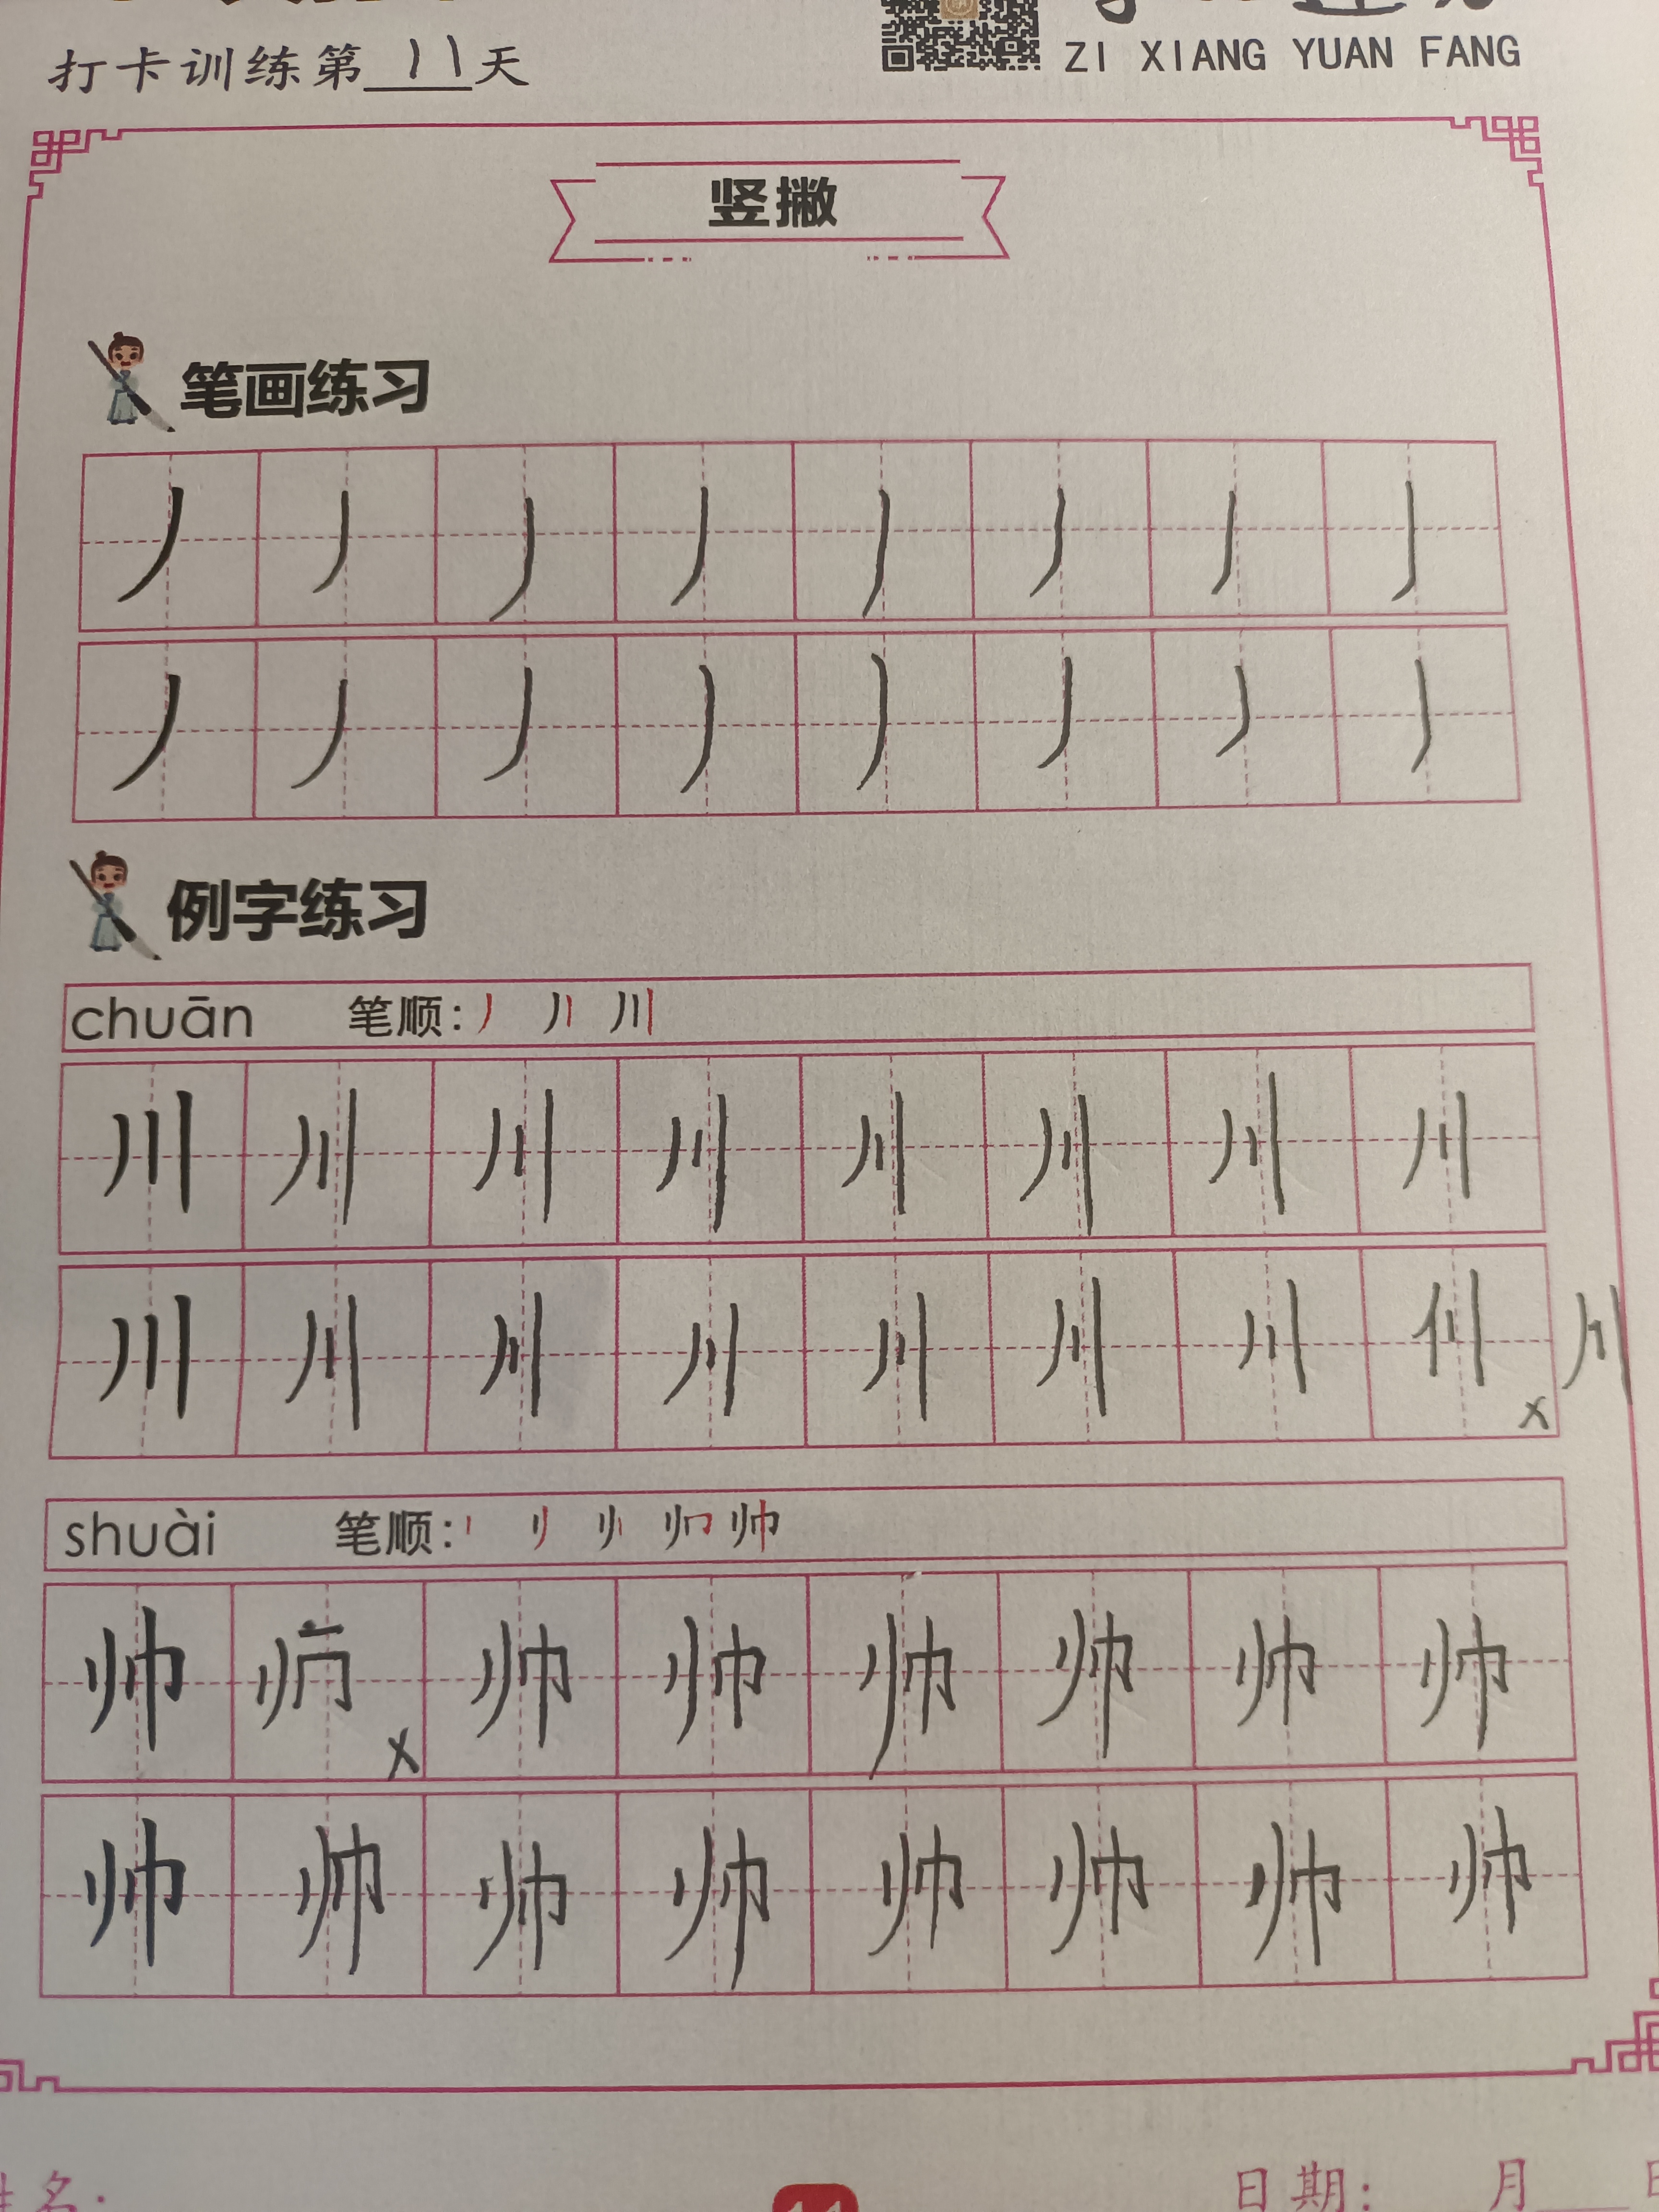 打卡训练第 11 天
ZI XIANG YUAN FANG
竖撇
笔画练习
丿 丿 丿 丿 丿 丿 丿 丿
丿 丿 丿 丿 丿 丿 丿 丿
例字练习
chuān 笔顺: 丿 丿丨 川
川 川 川 川 川 川 川 川
川 川 川 川 川 川 川 x 川
shuài 笔顺: 丨 刂 帅
帅 x 帅 帅 帅 帅 帅 帅
帅 帅 帅 帅 帅 帅 帅 帅
姓名:
11
日期: 月 日